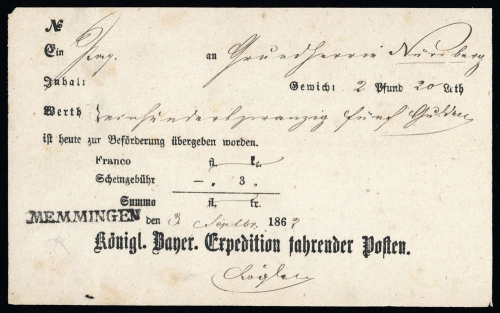 №
Ein Paq. an Grundherrin Nürnberg
Inhalt: Gewicht 2 Pfund 20 Lth
Werth einhundertzwanzig fünf Gulden
ist heute zur Beförderung übergeben worden.
Franco fl. kr.
Scheingebühr — „ 3 „
Summa fl. kr.
MEMMINGEN den 3 Septbr. 1862
Königl. Bayer. Expedition fahrender Posten.